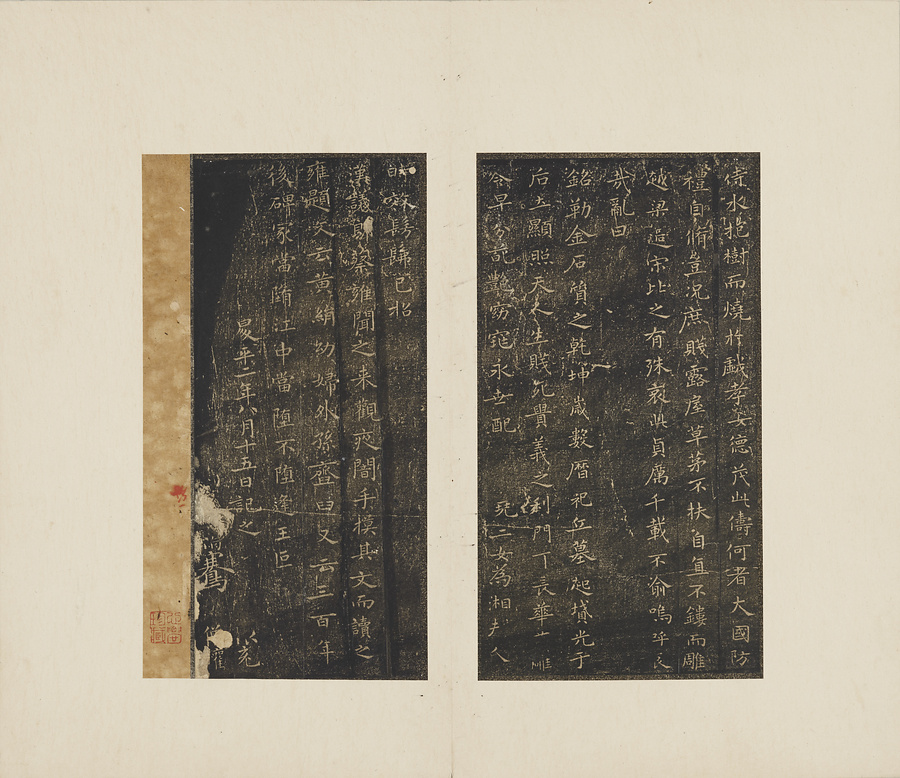 待水抱樹而燒扵戲孝女德茂此儔何者大國防
禮自脩豈況庶賤露屋草茅不扶自直不鏤而雕
越梁過宋比之有殊哀此貞厲千載不渝嗚呼哀
哉亂曰
銘勒金石質之乾坤歲數曆祀丘墓起墳光于
后土顯照天人生賤死貴義之利門丁長華雕
令早分葩艷窈窕永世配 堯二女為湘夫人
時效髣髴已招
漢議郎蔡雍聞之來觀夜闇手摸其文而讀之
雍題文云黃絹幼婦外孫齏臼又云三百年
後碑冢當墮江中當墮不墮逢王叵
昇平二年八月十五日記之